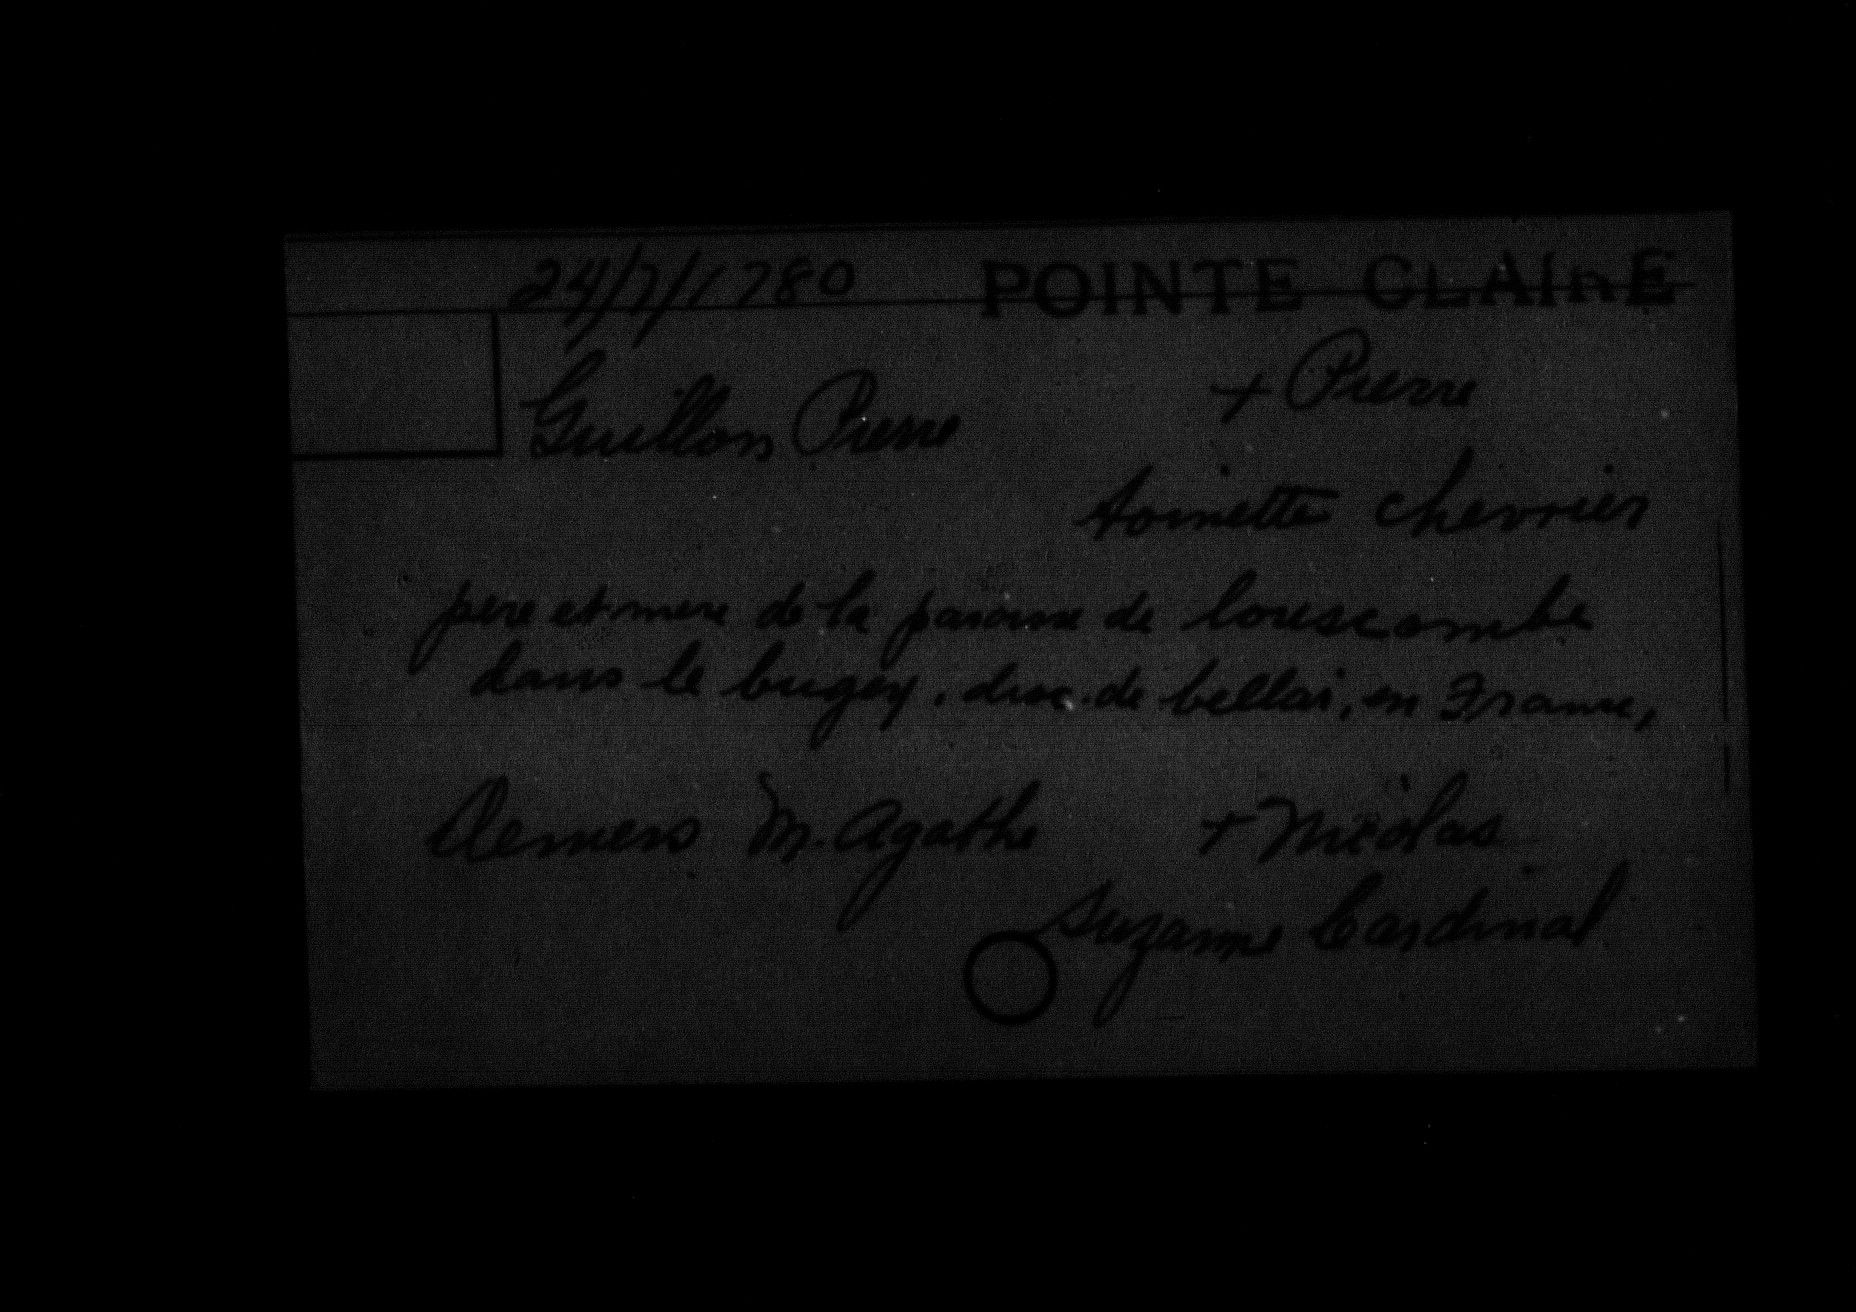 24/7/1780 POINTE CLAIRE
Guillon Pierre + Pierre
toinette chevrier
pere et mere de la paroisse de louscombe
dans le bugey. dioc. de bellai, en France,
Demers M. Agathe + Nicolas
Suzanne Cardinal